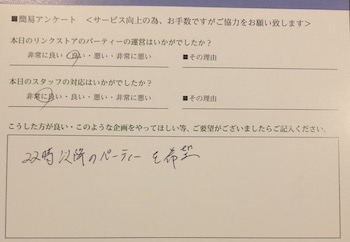 ■簡易アンケート ＜サービス向上の為、お手数ですがご協力をお願い致します＞
本日のリンクストアのパーティーの運営はいかがでしたか？
非常に良い・良い・悪い・非常に悪い ■その理由
本日のスタッフの対応はいかがでしたか？
非常に良い・良い・悪い・非常に悪い ■その理由
こうした方が良い・このような企画をやってほしい等、ご要望がございましたらご記入ください。
22時以降のパーティーを希望